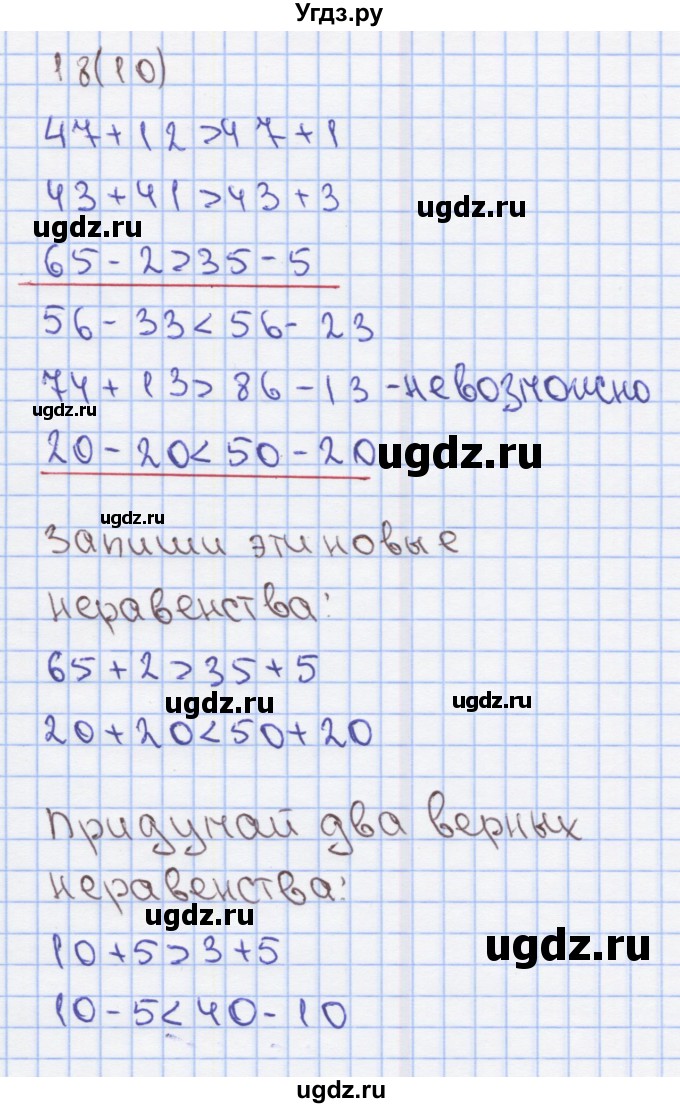 Угдз.ру
18(10)
47+12>47+1
43+41>43+3
ugdz.ru
ugdz.ru
65-2>35-5
56-33<56-23
74+13>86-13 -невозможно
ugdz.ru
20-20<50-20
ugdz.ru
ugdz.ru
Запиши эти новые
неравенства:
65+2>35+5
ugdz.ru
ugdz.ru
20+20<50+20
Придумай два верных
неравенства:
ugdz.ru
10+5>3+5
ugdz.ru
10-5<40-10
ugdz.ru